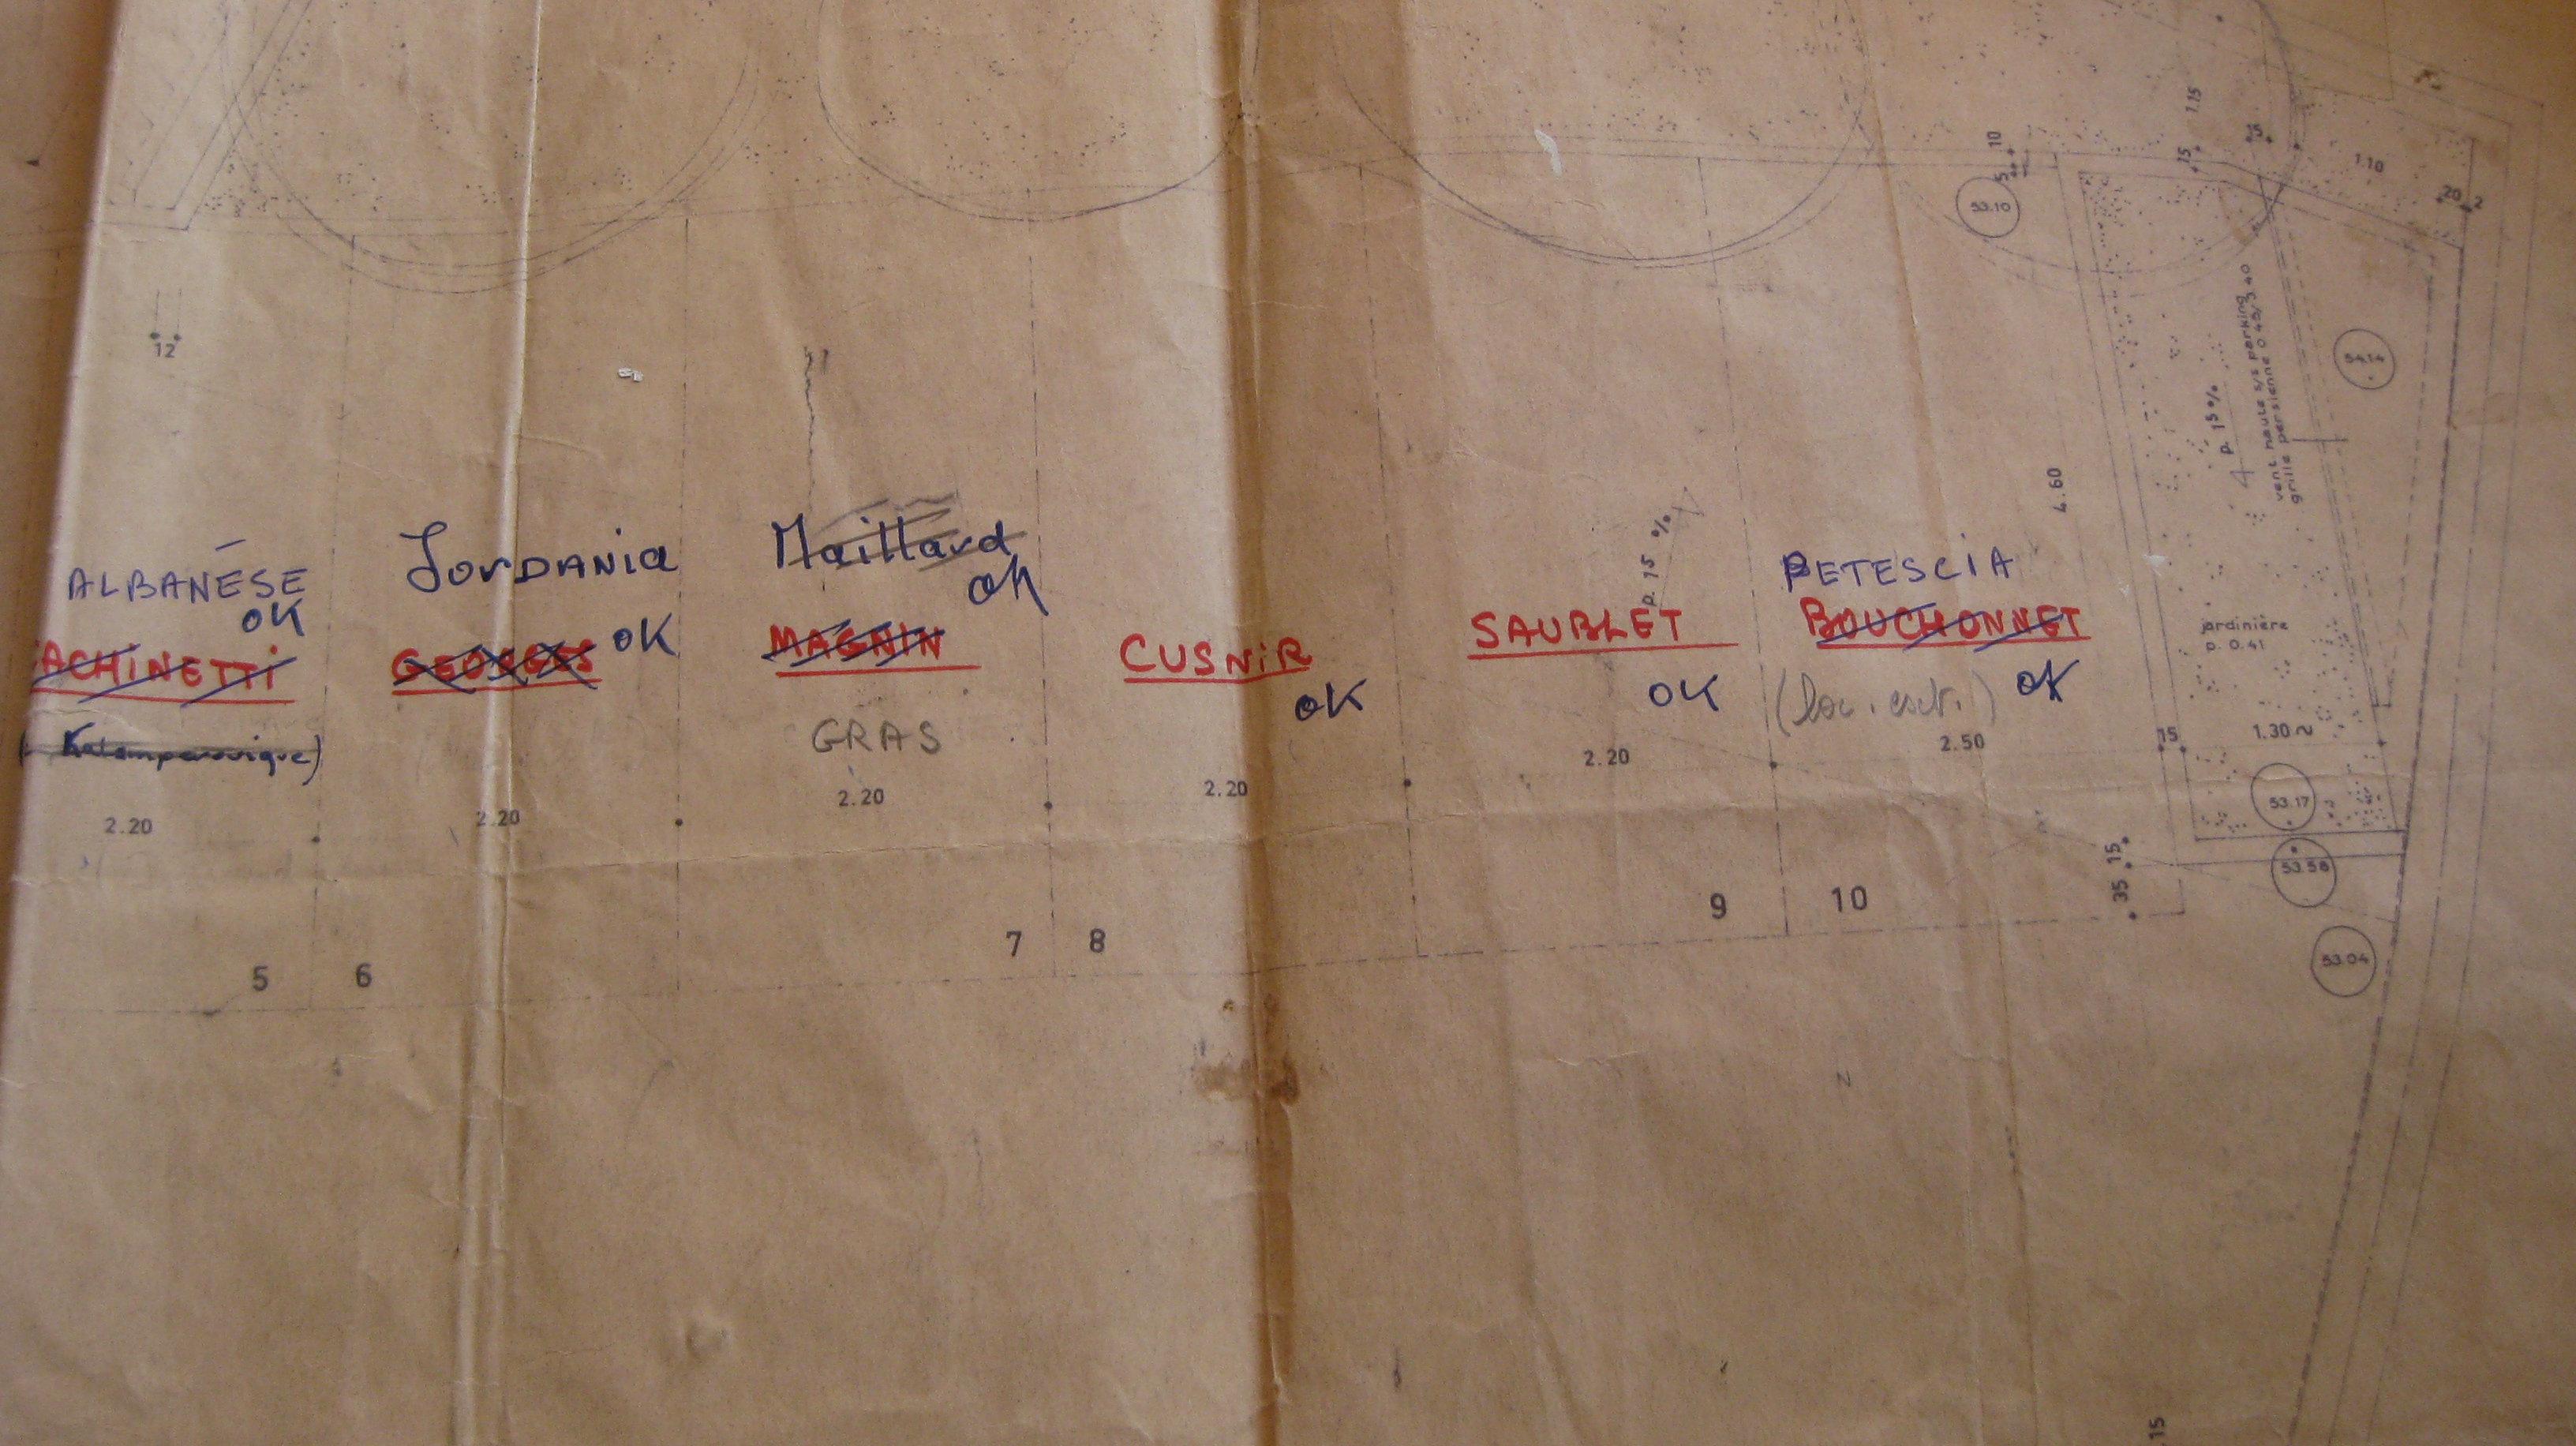 1.15
10
5
15
15
1.10
20
2
53.10
12
54.14
vent haute s/s parking
grille persienne 0.40/3.40
p. 15%
4.60
p. 15 %
ALBANÉSE
OK
ACHINETTI
JORDANIA
OK
GEORGES
Maillard
OK
MAGNIN
GRAS
CUSNIR
OK
SAUBLET
OK
PETESCIA
BOUCHONNET
OK
jardinière
p. 0.41
2.20
2.20
2.20
2.20
2.20
2.50
15
1.30
53.17
53.58
15
35
53.04
5
6
7
8
9
10
15